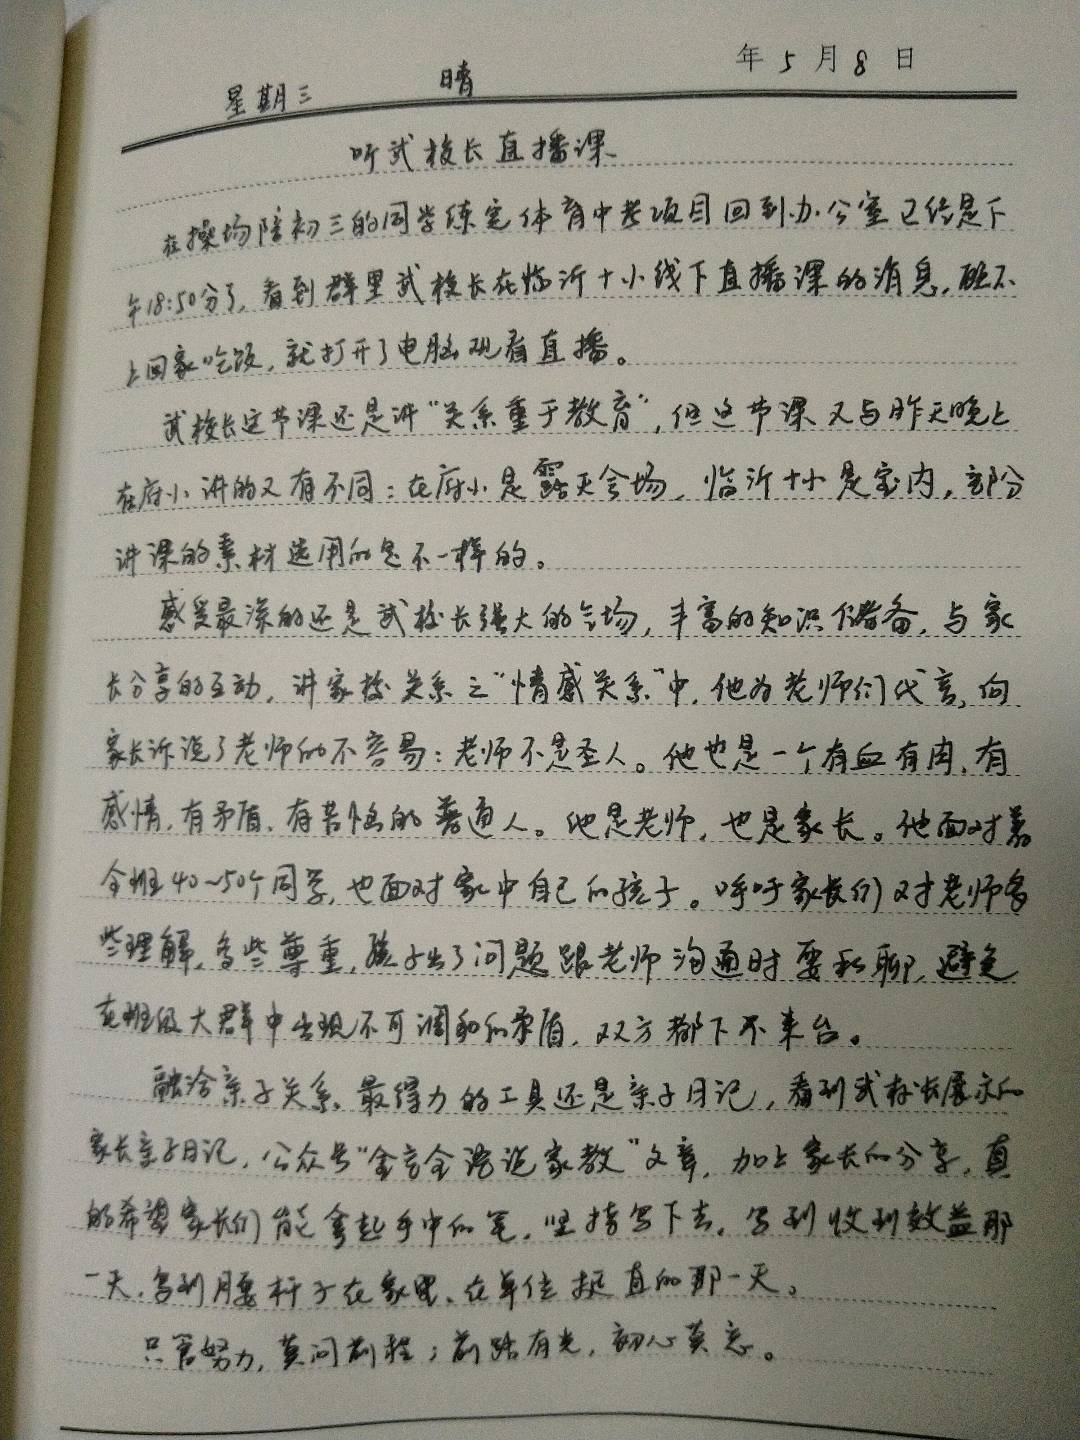 年 5 月 8 日
星期三 晴
听武校长直播课
在操场陪初三的同学练完体育中考项目回到办公室已经是下
午18:50分了，看到群里武校长在临沂十小线下直播课的消息，顾不
上回家吃饭，就打开了电脑观看直播。
武校长这节课还是讲“关系重于教育”，但这节课又与昨天晚上
在府小讲的又有不同：在府小是露天会场，临沂十小是室内，部分
讲课的素材选用的是不一样的。
感受最深的还是武校长强大的气场，丰富的知识储备，与家
长分享的互动，讲家校关系之“情感关系”中，他为老师们代言，向
家长诉说了老师的不容易：老师不是圣人。他也是一个有血有肉、有
感情，有矛盾、有苦恼的普通人。他是老师，也是家长。他面对着
全班40~50个同学，也面对家中自己的孩子。呼吁家长们对老师多
些理解，多些尊重，孩子出了问题跟老师沟通时要私聊，避免
在班级大群中出现不可调和的矛盾，双方都下不来台。
融洽亲子关系，最得力的工具还是亲子日记，看到武校长展示的
家长亲子日记，公众号“金言全语说家教”文章，加上家长的分享，真
的希望家长们能拿起手中的笔，坚持写下去，写到收到效益那
一天，写到腰杆子在家里、在单位挺直的那一天。
只管努力，莫问前程；前路有光，初心莫忘。